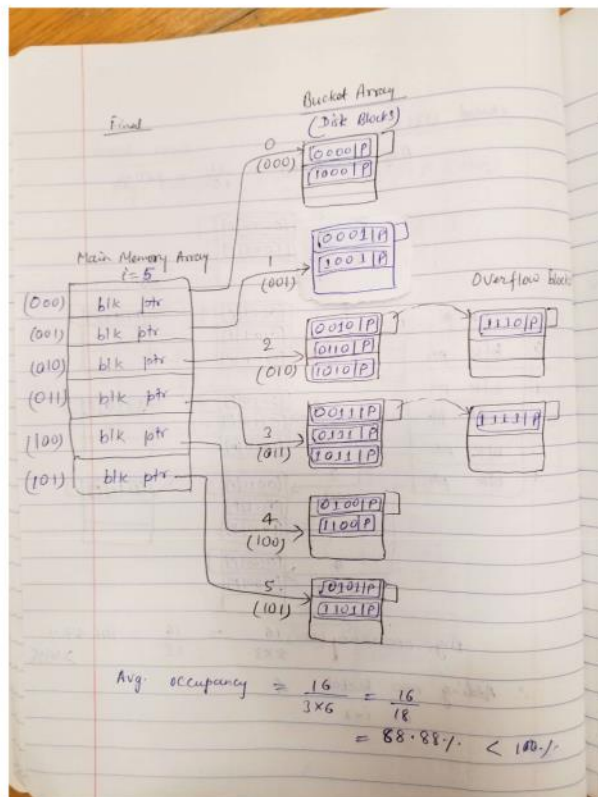 Final
Bucket Array
(Disk Blocks)
0
(000)
0000|P
1000|P
1
(001)
0001|P
1001|P
Main Memory Array
i=5
Overflow block
(000) blk ptr
(001) blk ptr
(010) blk ptr
(011) blk ptr
(100) blk ptr
(101) blk ptr
2
(010)
0010|P
0110|P
1010|P
1110|P
3
(011)
0011|P
0111|P
1011|P
1111|P
4
(100)
0100|P
1100|P
5.
(101)
0101|P
1101|P
Avg. occupancy = 16/3×6 = 16/18
= 88.88% < 100%